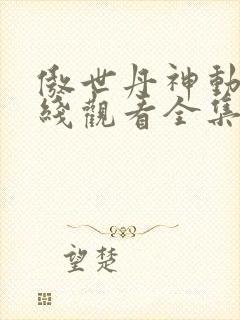 傲世丹神動
綫觀看全集
望楚